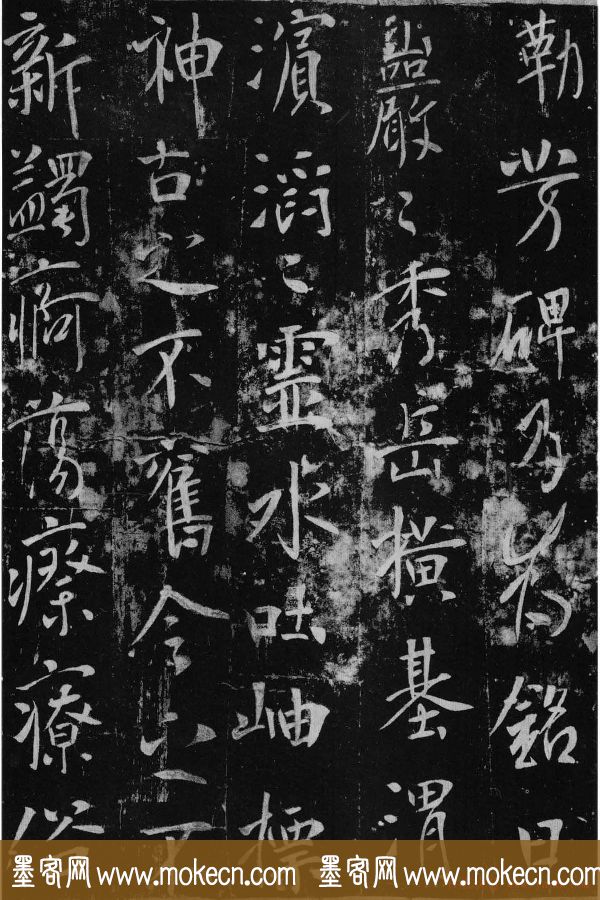 勒芳碑乃為銘曰
巖〻秀岳橫基渭
濱滔〻靈水吐岫標
神古之不舊今之不
新蠲痾蕩瘵療俗
墨客网 www.mokecn.com 墨客网 www.mokecn.com